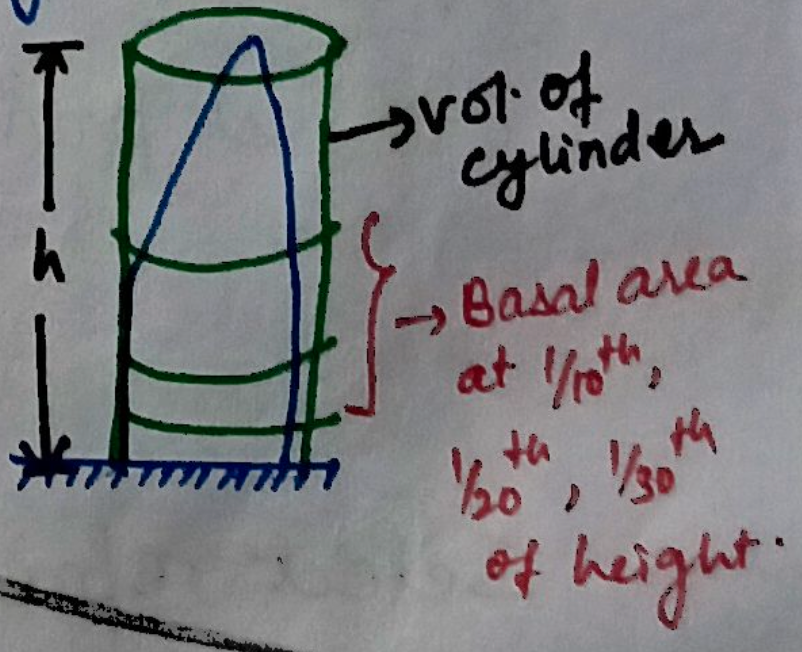 h
→ vol. of
cylinder
→ Basal area
at 1/10th,
1/20th, 1/30th
of height.